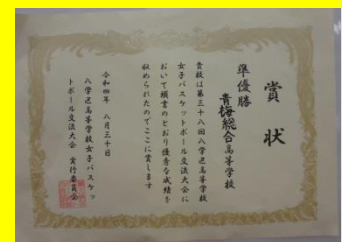 賞状
準優勝
青梅総合高等学校
貴校は第三十八回八学区高等学校
女子バスケットボール交流大会に
おいて頭書のとおり優秀な成績を
収められたのでここに賞します
令和四年 八月三十日
八学区高等学校女子バスケッ
トボール交流大会 実行委員会